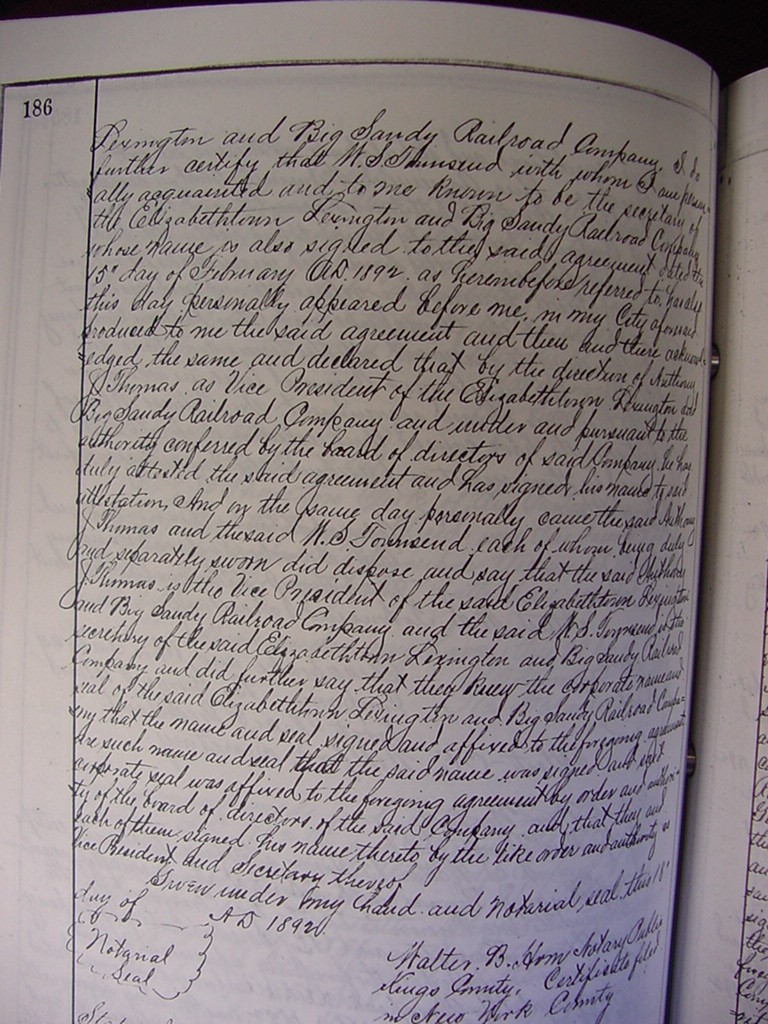 186
Lexington and Big Sandy Railroad Company. I do
further certify that W. S. Townsend with whom I am person-
ally acquainted and to me known to be the secretary of
the Elizabethtown Lexington and Big Sandy Railroad Company
whose name is also signed to the said agreement dated the
15" day of February A.D. 1892 as hereinbefore referred to, has also
this day personally appeared before me, in my City aforesaid
produced to me the said agreement and then and there acknowl-
edged the same and declared that by the direction of Anthony
J Thomas as Vice President of the Elizabethtown Lexington and
Big Sandy Railroad Company and under and pursuant to the
authority conferred by the board of directors of said Company he has
duly attested the said agreement and has signed his name to said
attestation, And on the same day personally came the said Anthony
J Thomas and the said W. S. Townsend each of whom being duly
and separately sworn did dispose and say that the said Anthony
J Thomas is the Vice President of the said Elizabethtown Lexington
and Big Sandy Railroad Company and the said W. S. Townsend is the
secretary of the said Elizabethtown Lexington and Big Sandy Railroad
Company and did further say that they knew the corporate name and
seal of the said Elizabethtown Lexington and Big Sandy Railroad Compa-
ny that the name and seal signed and affixed to the foregoing agreement
are such name and seal that the said name was signed and said
corporate seal was affixed to the foregoing agreement by order and authori-
ty of the board of directors of the said Company and that they and
each of them signed his name thereto by the like order and authority as
Vice President and Secretary thereof
Given under my hand and Notarial seal this 18"
day of A D 1892
Notarial
Seal
Walter B. Horn Notary Public
Kings County. Certificate filed
in New York County